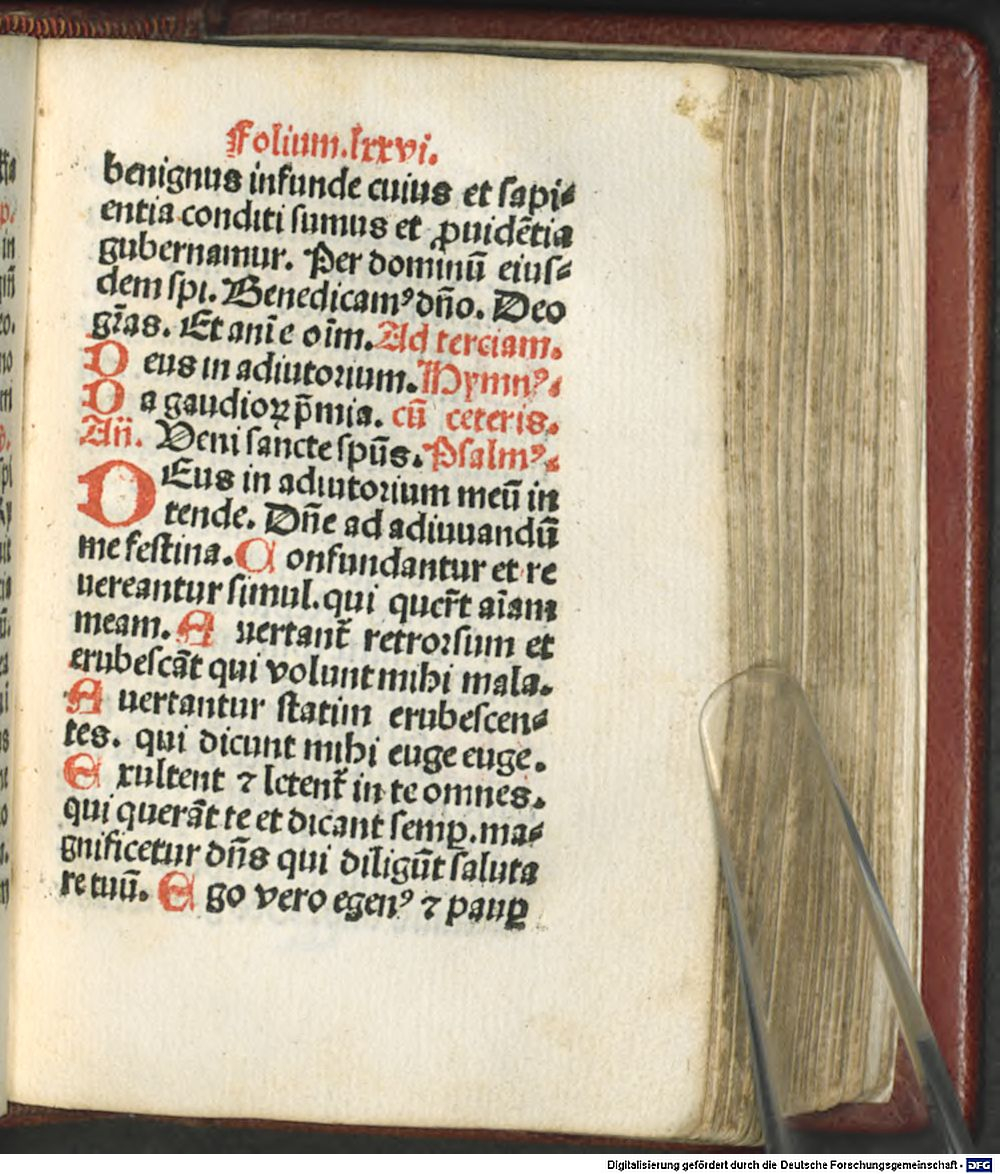 Folium.lxxvi.
benignus infunde cuius et sapi⸗
entia conditi sumus et ꝓuidētia
gubernamur. Per dominū eius⸗
dem spi. Benedicamꝰ dn̄o. Deo
gr̄as. Et anīe oīm. Ad terciam.
D eus in adiutorium. Hymnꝰ.
D a gaudioꝝ p̄mia. cū ceteris.
An̄. Veni sancte spūs. Psalmꝰ.
DEus in adiutorium meū in
tende. Dn̄e ad adiuuandū
me festina. C onfundantur et re
uereantur simul. qui quer̄t aīam
meam. A uertant̄ retrorsum et
erubescāt qui volunt mihi mala.
A uertantur statim erubescen⸗
tes. qui dicunt mihi euge euge.
E xultent ⁊ letent̄ in te omnes.
qui querāt te et dicant semꝑ. ma⸗
gnificetur dn̄s qui diligūt saluta
re tuū. E go vero egenꝰ ⁊ pauꝑ
Digitalisierung gefördert durch die Deutsche Forschungsgemeinschaft - DFG